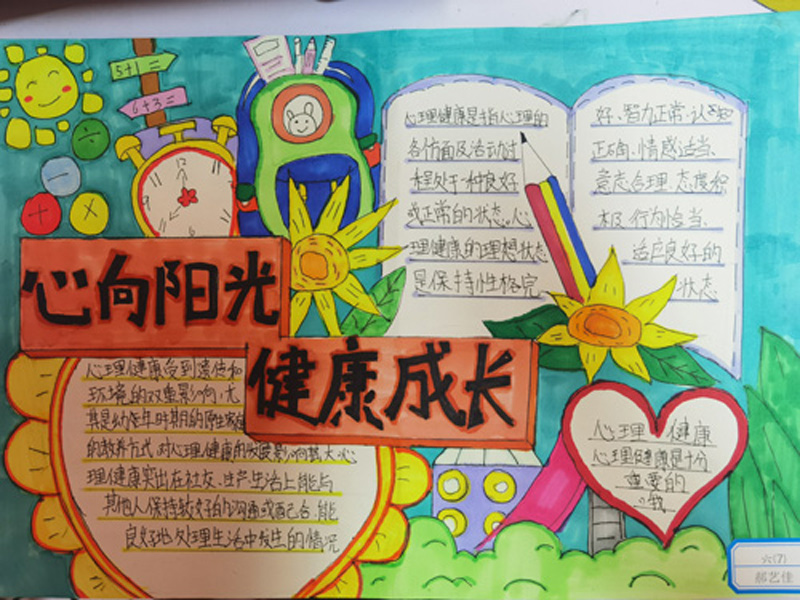 5+1=
6+3=
12
心向阳光
健康成长
心理健康是指心理的
各仿面及活动过
程处于一种良好
或正常的状态。心
理健康的理想状态
是保持性格完
好、智力正常、认知
正确、情感适当、
意志合理、态度积
极、行为恰当、
适应良好的
状态
心理健康受到遗传和
环境的双重影响,尤
其是幼年时期的原生家庭
的教养方式,对心理健康的发展影响甚大,心
理健康突出在社交、生产、生活上能与
其他人保持较好的沟通或配合,能
良好地处理生活中发生的情况
心理健康
心理健康是十分
重要的
哦
六(7)
郝艺佳